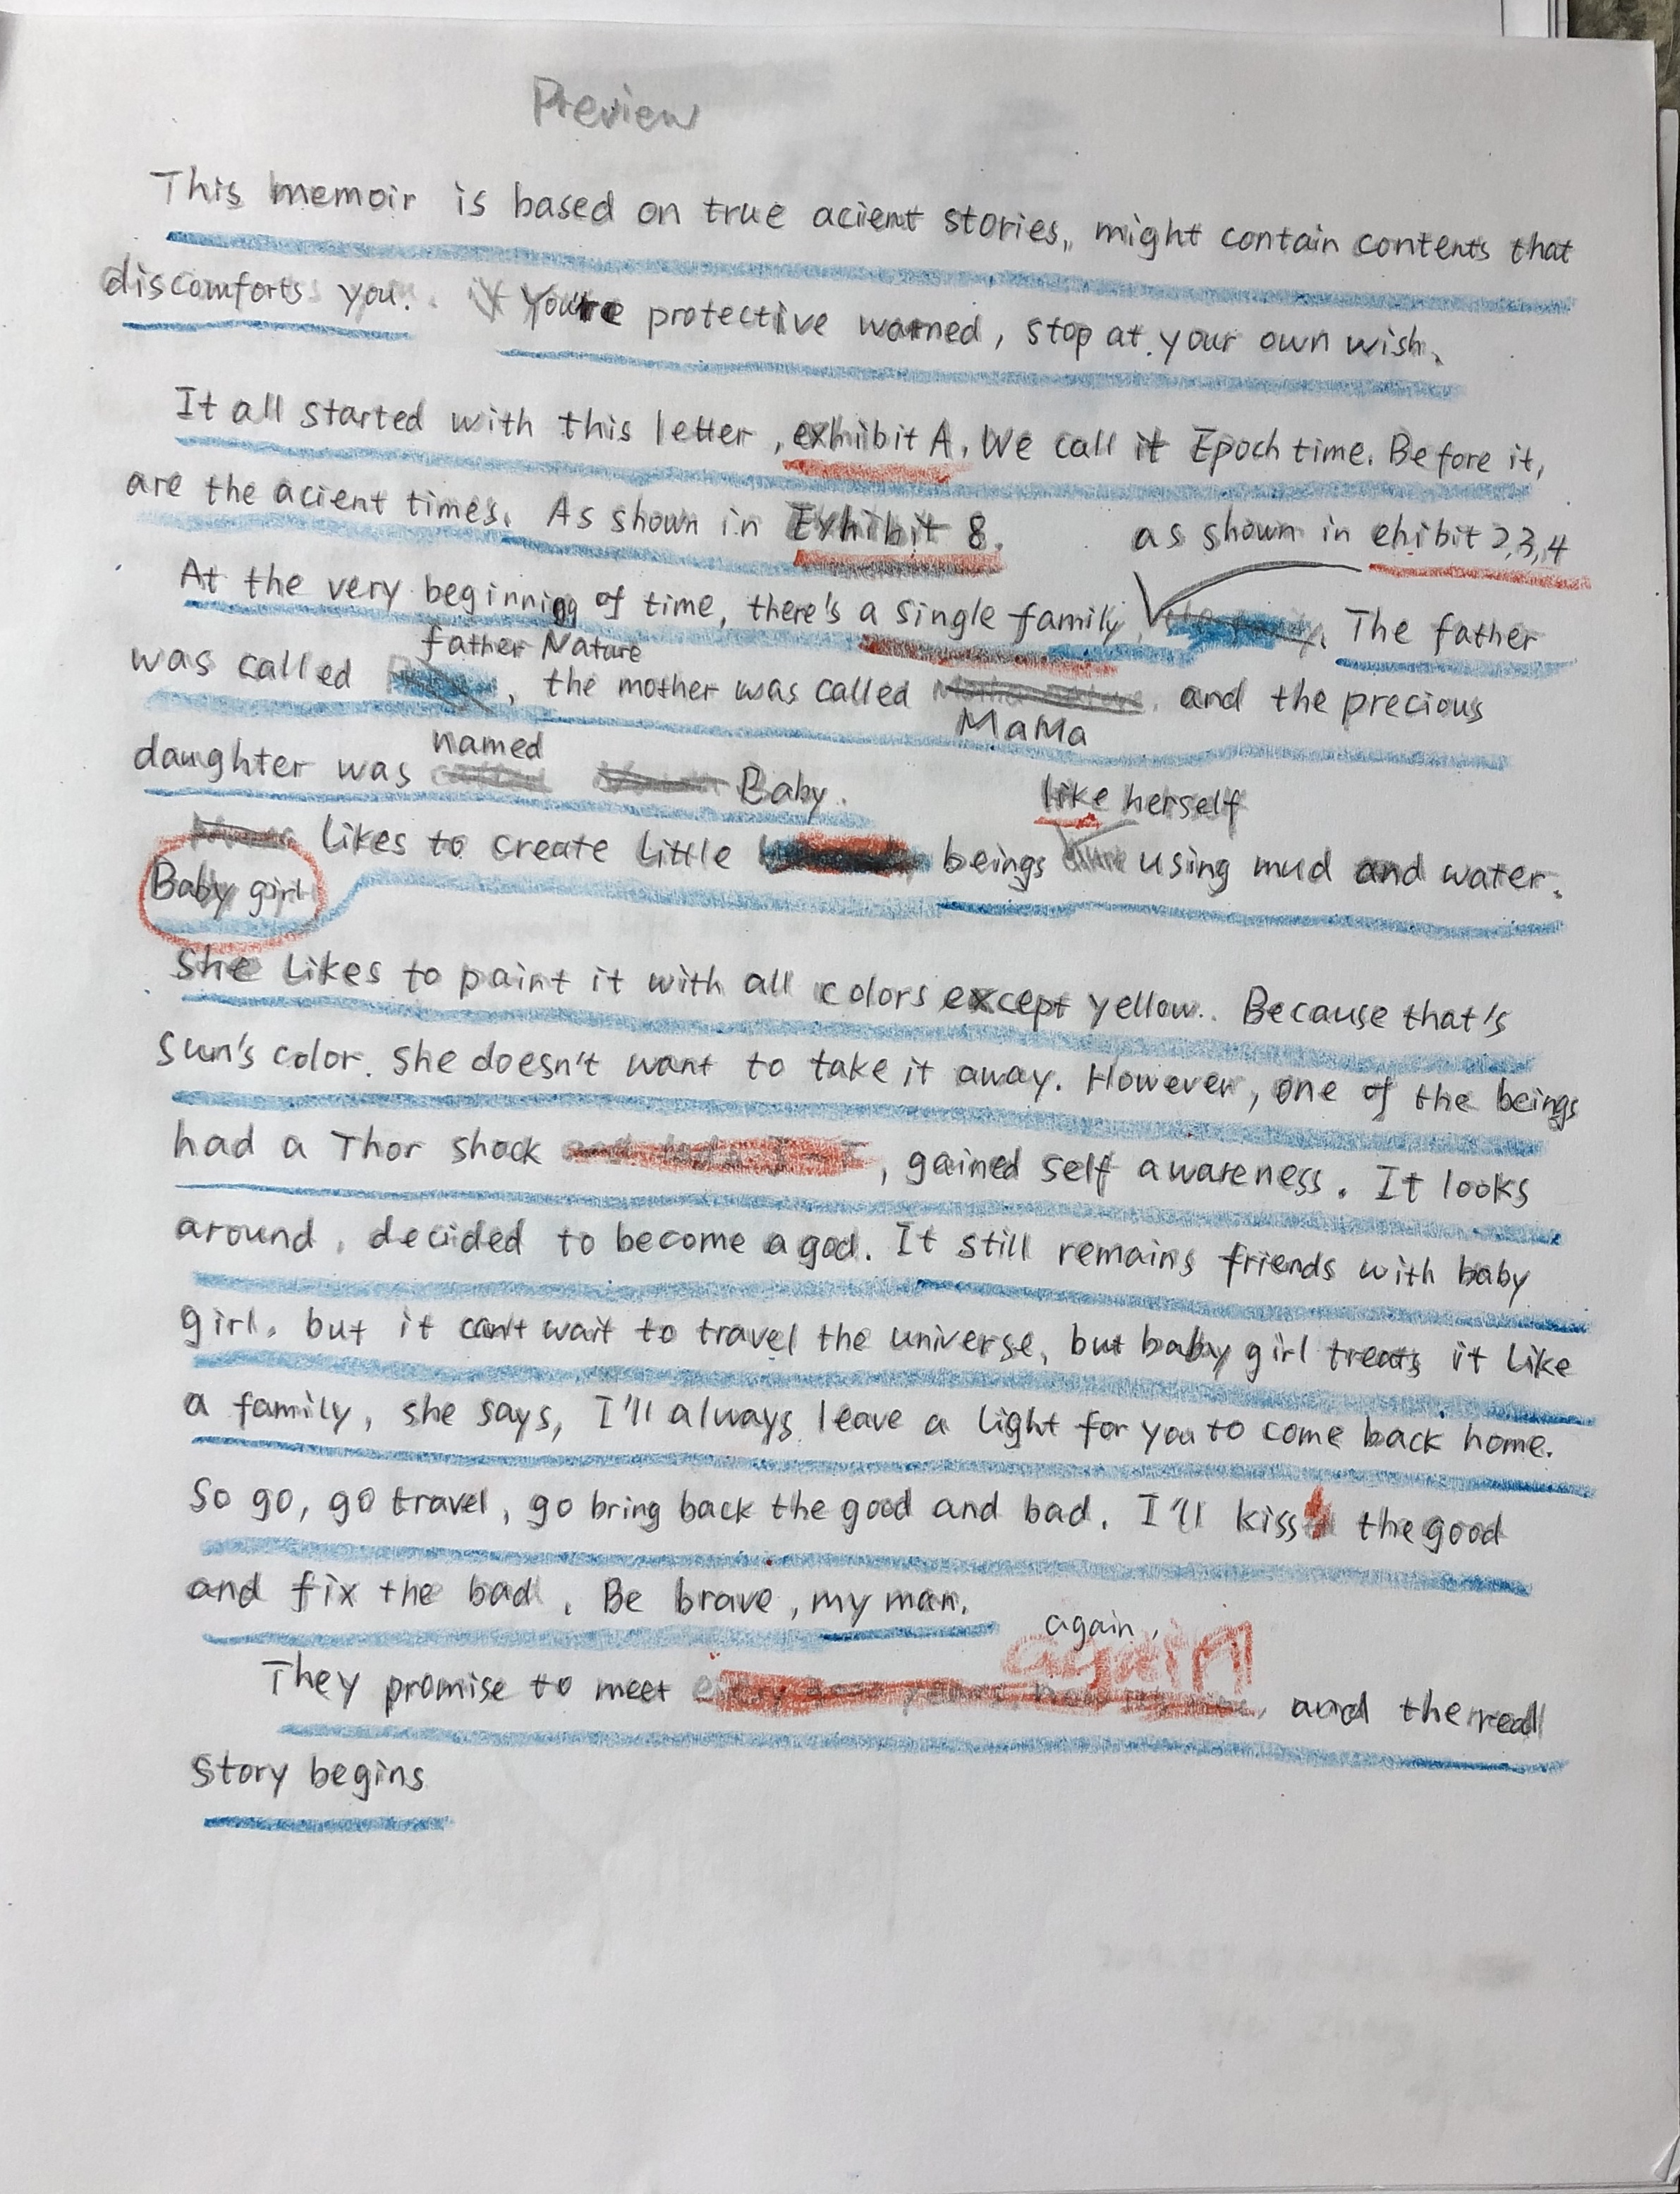 Preview
This memoir is based on true acient stories, might contain contents that
discomforts you. You're protective warned, stop at your own wish.
It all started with this letter, exhibit A. We call it Epoch time. Before it,
are the acient times. As shown in Exhibit 8.
as shown in ehibit 2,3,4
At the very beginning of time, there's a single family. The father
father Nature
was called , the mother was called and the precious
MaMa
named
daughter was Baby.
like herself
likes to create little beings using mud and water.
Baby girl
She likes to paint it with all colors except yellow. Because that's
sun's color. She doesn't want to take it away. However, one of the beings
had a Thor shock , gained self awareness. It looks
around, decided to become a god. It still remains friends with baby
girl, but it can't wait to travel the universe, but baby girl treats it like
a family, she says, I'll always leave a light for you to come back home.
So go, go travel, go bring back the good and bad. I'll kiss the good
and fix the bad. Be brave, my man.
again,
again
They promise to meet , and the real
story begins